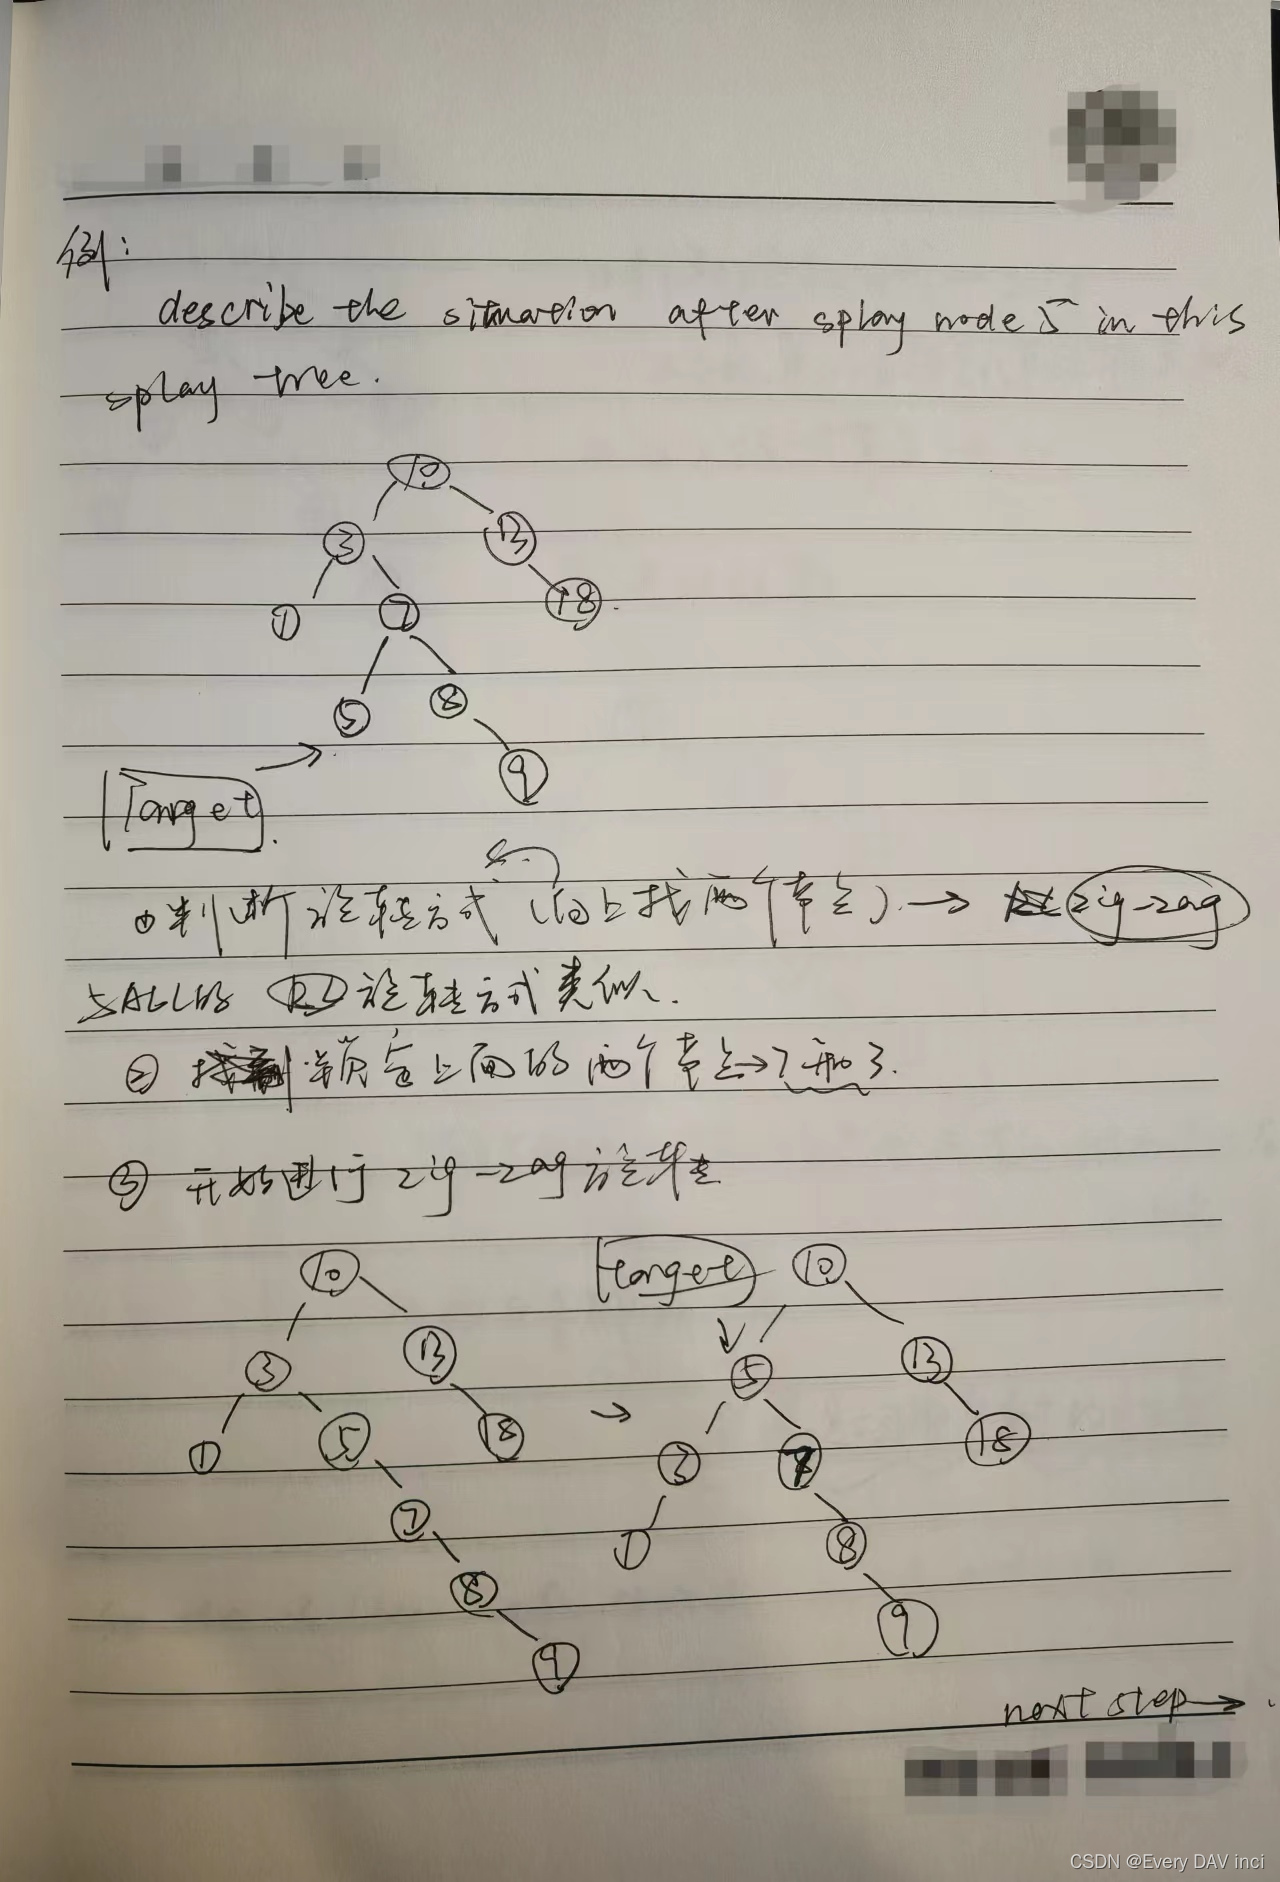 例:
describe the situation after splay node 5 in this
splay tree.
10
3 13
1 7 18
5 8
9
Target
①判断旋转方式(向上找两个节点)→ zig-zag
与AVL的 RL 旋转方式类似.
② 锁定上面的两个节点→7和3.
③ 开始进行zig-zag旋转
target
10 10
3 13 5 13
1 5 18 → 3 7 18
7 1 8
8 9
9
next step→
CSDN @Every DAV inci